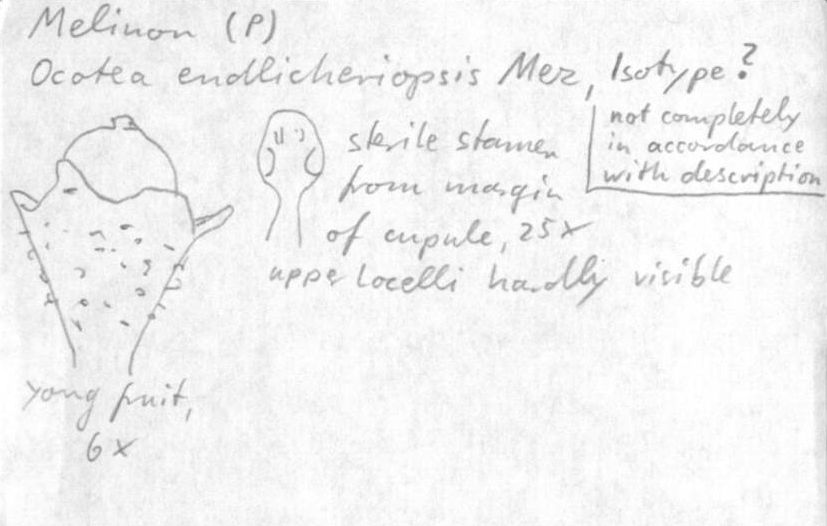 Melinon (P)
Ocotea endlicheriopsis Mez, Isotype?
not completely
in accordance
with description
sterile stamen
from margin
of cupule, 25x
upper locelli hardly visible
yong fruit,
6x